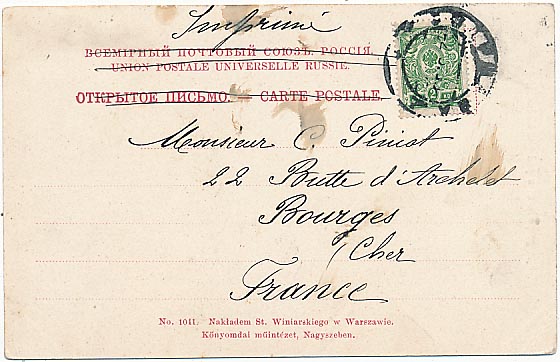 Imprimé
ВСЕМІРНЫЙ ПОЧТОВЫЙ СОЮЗЪ. РОССІЯ.
UNION POSTALE UNIVERSELLE RUSSIE.
ОТКРЫТОЕ ПИСЬМО. — CARTE POSTALE.
Monsieur C. Pinist
22 Butte d'Archelet
Bourges
Cher
France
No. 1041. Nakładem St. Winiarskiego w Warszawie.
Könyomdai műintézet, Nagyszeben.